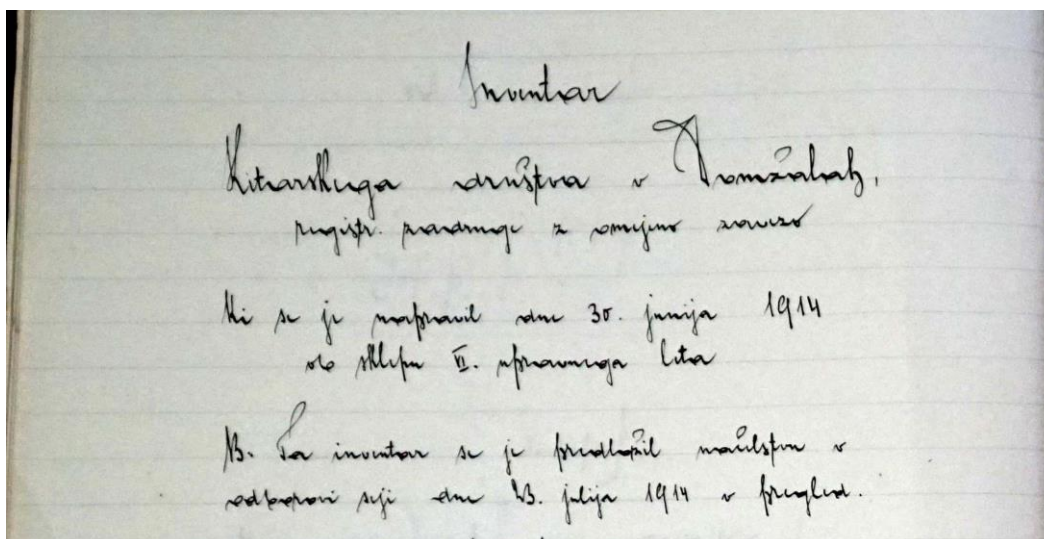 Inventar
Kitarskega društva v Domžalah,
registr. zadruge z omejeno zavezo
ki se je napravil dne 30. junija 1914
ob sklepu VI. upravnega leta
NB. Ta inventar se je predložil načelstvu v
odborovi seji dne 23. julija 1914 v pregled.